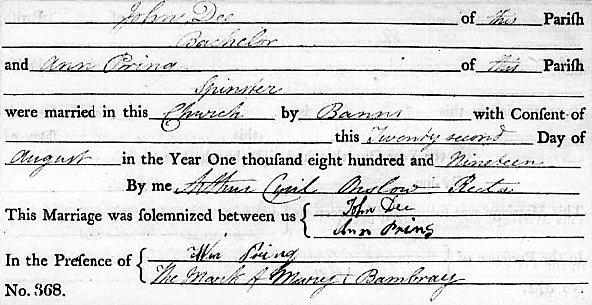 John Dee of this Parish
Bachelor
and Ann Pring of this Parish
Spinster
were married in this Church by Banns with Consent of
this Twenty second Day of
August in the Year One thouſand eight hundred and Nineteen
By me Arthur Cyril Onslow Rector
This Marriage was ſolemnized between us { John Dee
Ann Pring
In the Preſence of { Wm Pring
The Mark of Mary + Bambray
No. 368.